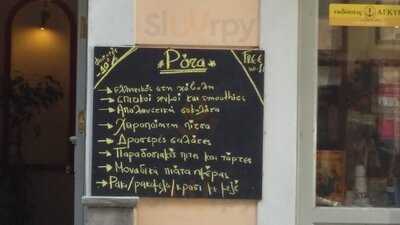 Ρότα
εκδόσεις ΑΓΚΥ
→ ελληνικός στη χόβολη
→ σπιτικοί χυμοί και smoothies
→ Απολαυστική σοκολάτα
→ Χειροποίητη πίτσα
→ Δροσερές σαλάτες
→ Παραδοσιακές πίτες και τάρτες
→ Μοναδικά πιάτα ημέρας
→ Ρακί/ρακόμελο/κρασί με μεζέ